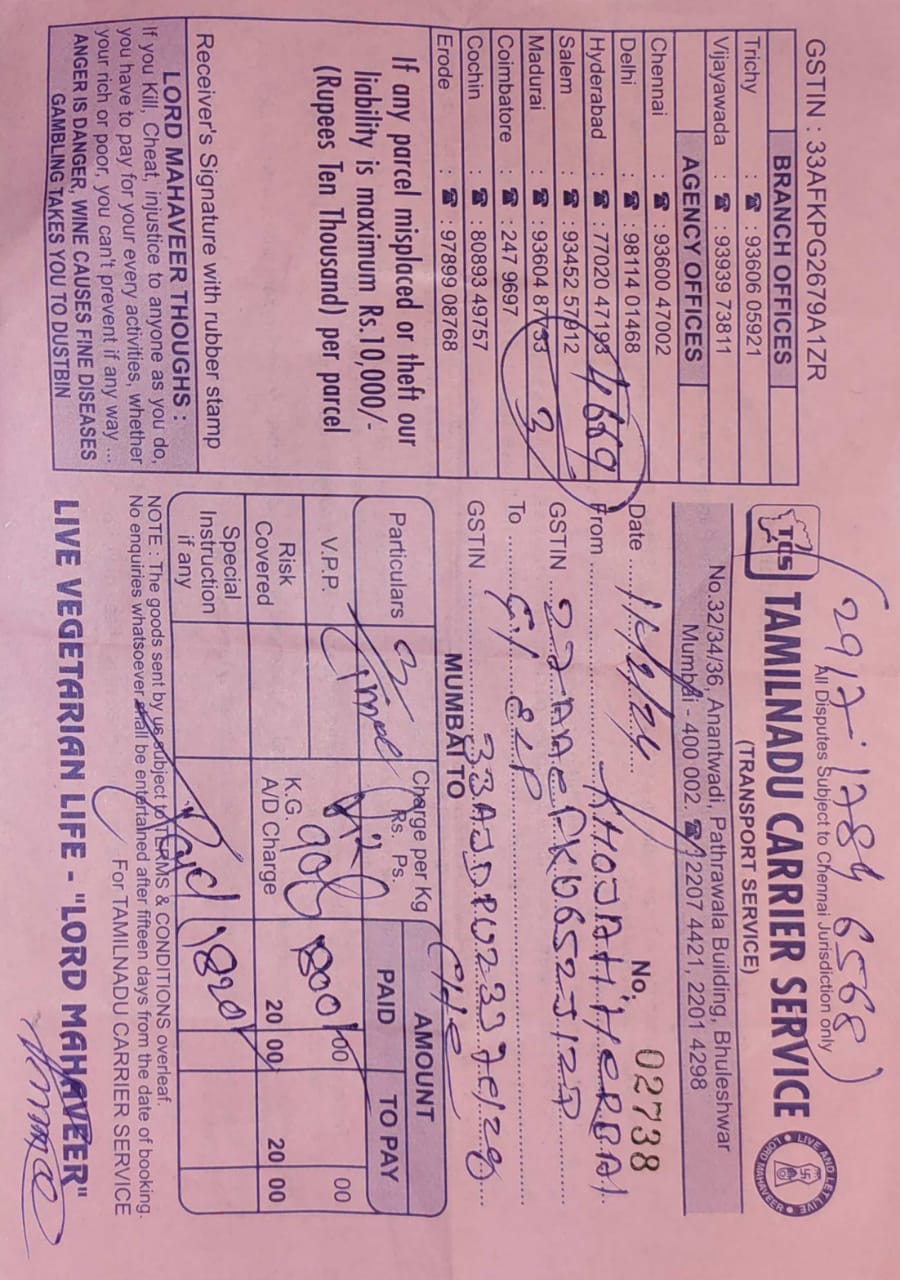 GSTIN : 33AFKPG2679A1ZR
BRANCH OFFICES
Trichy : ☎ : 93606 05921
Vijayawada : ☎ : 93939 73811
AGENCY OFFICES
Chennai : ☎ : 93600 47002
Delhi : ☎ : 98114 01468
Hyderabad : ☎ : 77020 47193
Salem : ☎ : 93452 57912
Madurai : ☎ : 93604 87733
Coimbatore : ☎ : 247 9697
Cochin : ☎ : 80893 49757
Erode : ☎ : 97899 08768
4669
3
If any parcel misplaced or theft our
liability is maximum Rs.10,000/-
(Rupees Ten Thousand) per parcel
Receiver's Signature with rubber stamp
LORD MAHAVEER THOUGHS :
If you Kill, Cheat, injustice to anyone as you do,
you have to pay for your every activities, whether
your rich or poor, you can't prevent if any way ...
ANGER IS DANGER, WINE CAUSES FINE DISEASES
GAMBLING TAKES YOU TO DUSTBIN
2917-1784 6568
All Disputes Subject to Chennai Jurisdiction only
TCS TAMILNADU CARRIER SERVICE
(TRANSPORT SERVICE)
LIVE AND LET LIVE
LORD MAHAVEER
No.32/34/36, Anantwadi, Pathrawala Building, Bhuleshwar
Mumbai - 400 002. ☎ 2207 4421, 2201 4298
Date No. 02738
From KHOJAHHERBAL
GSTIN
To
GSTIN
MUMBAI TO CHE
Particulars Charge per Kg Rs. Ps. AMOUNT
PAID TO PAY
V.P.P. 908 1800 00 00
Risk Covered K.G. A/D Charge 20 00 20 00
Special Instruction if any Paid 1820
NOTE : The goods sent by us subject to TERMS & CONDITIONS overleaf.
No enquiries whatsoever shall be entertained after fifteen days from the date of booking.
For TAMILNADU CARRIER SERVICE
LIVE VEGETARIAN LIFE - "LORD MAHAVEER"